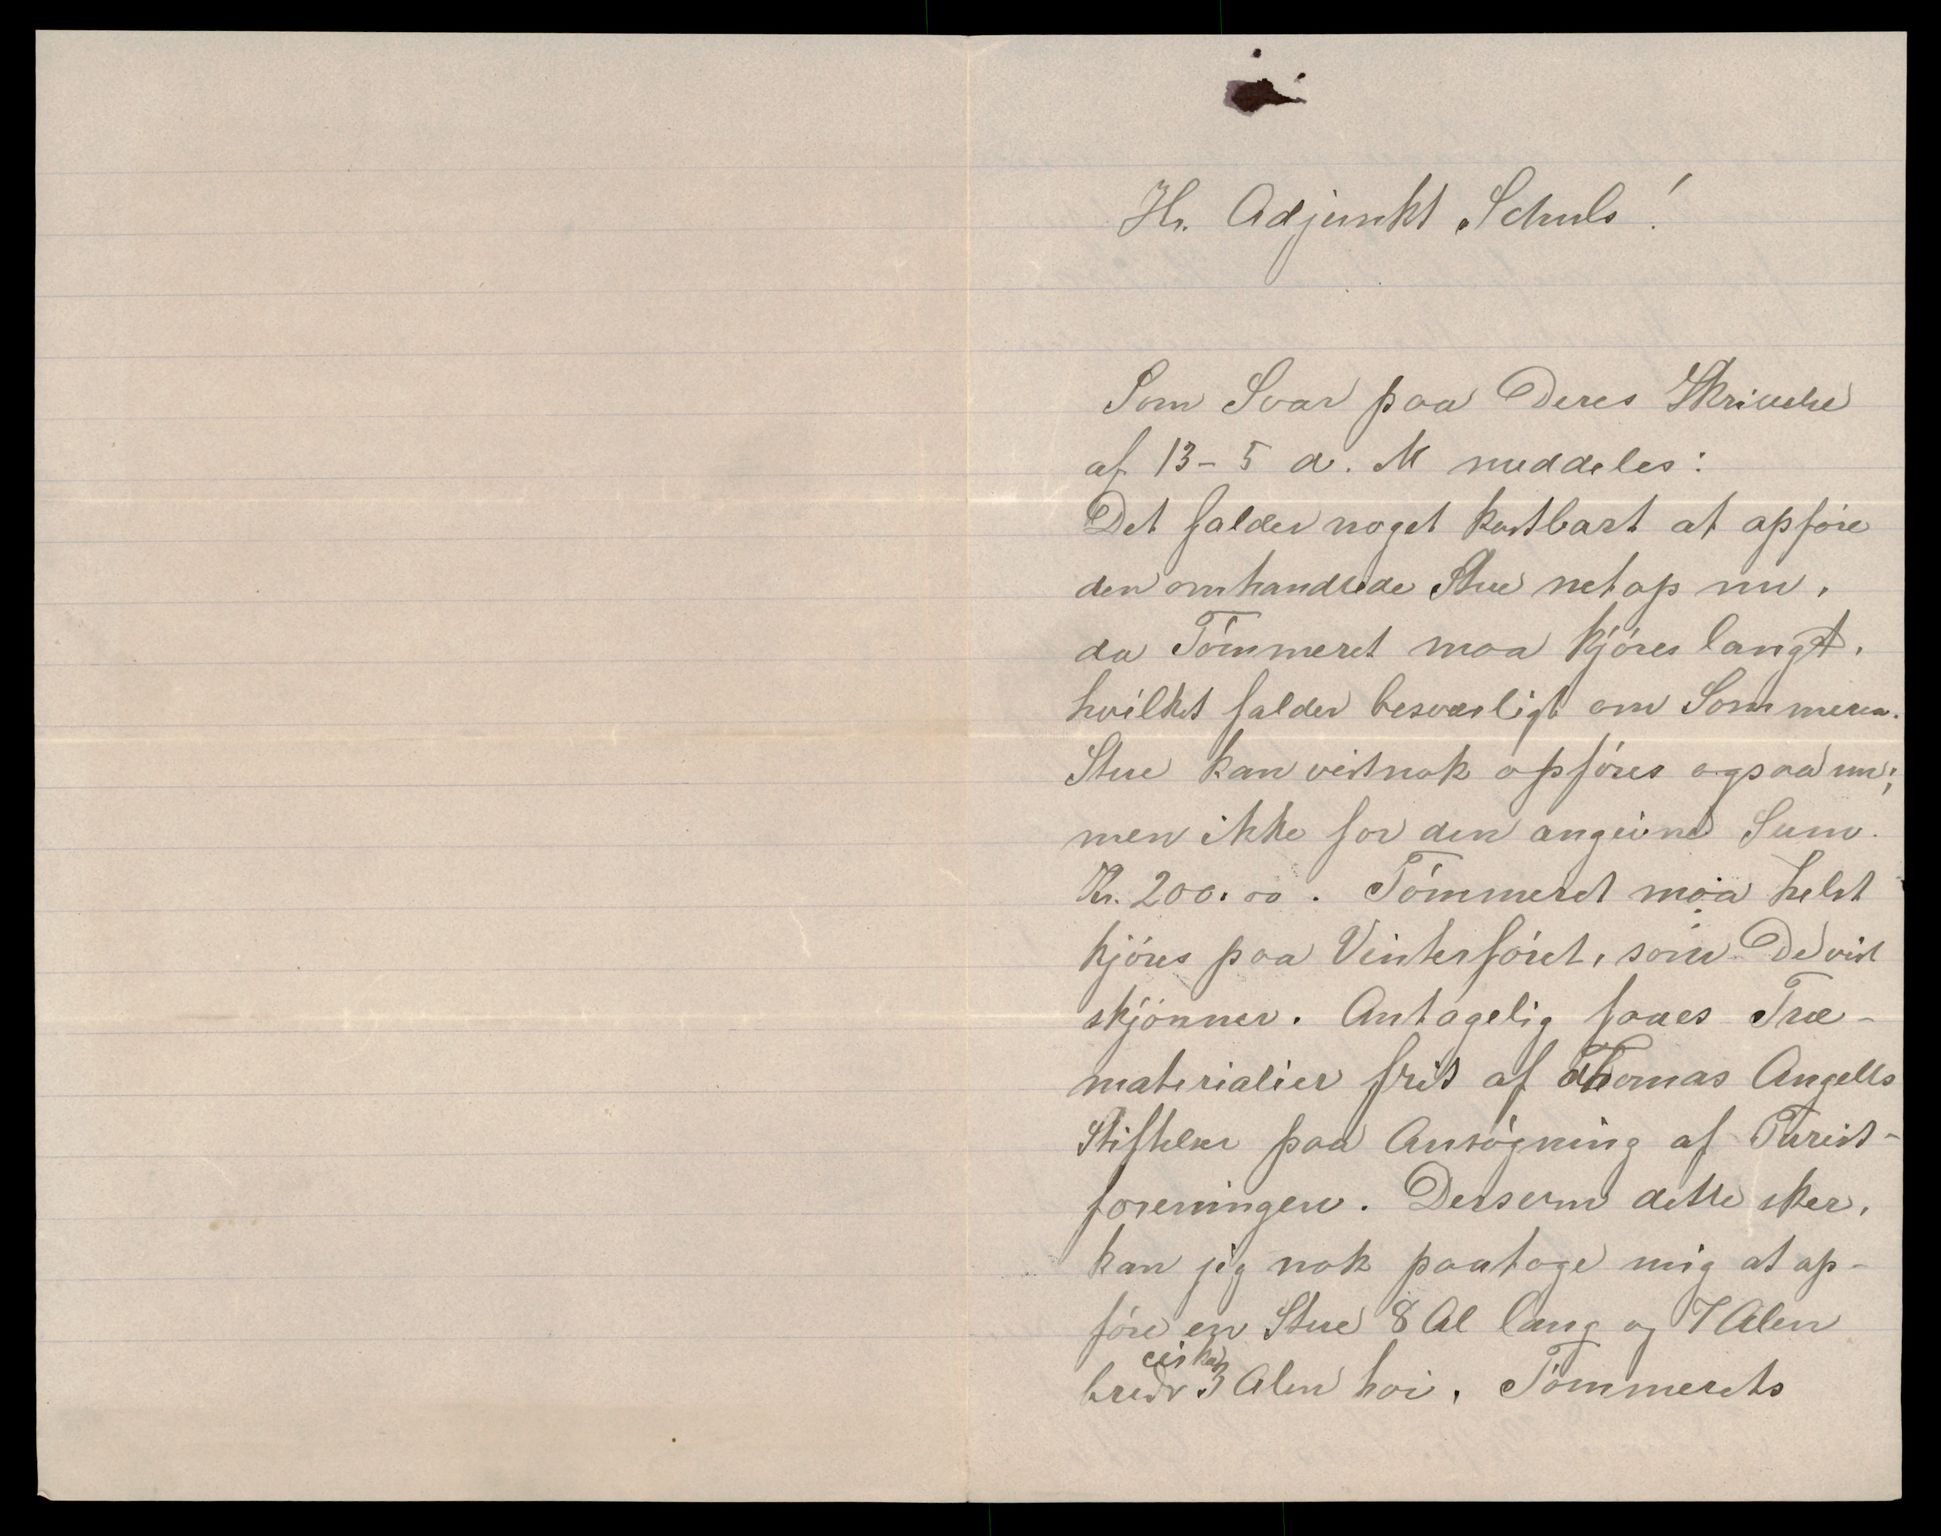 Hr. Adjunkt Schuls!
Som Svar paa Deres Skrivelse
af 13-5 d. M meddeles:
Det falder noget kostbart at opføre
den omhandlede Stue netop nu,
da Tømmeret maa kjøres langt,
hvilket falder besværligt om Sommeren.
Stue kan vistnok opføres ogsaa nu;
men ikke for den angivne Sum
Kr. 200.00. Tømmeret maa helst
kjøres paa Vinterføret, som De vist
skjønner. Antagelig faaes Træ-
materialier frit af Thomas Angells
Stiftelser paa Ansøgning af Turist-
foreningen. Dersom dette sker,
kan jeg nok paatage mig at op-
føre en Stue 8 Al lang og 7 Alen
bred cirka 3 Alen høi. Tømmerets